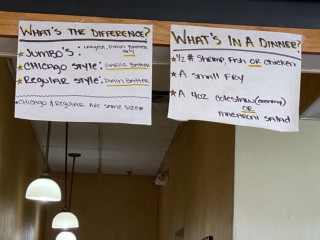 WHAT'S THE DIFFERENCE?
★JUMBO'S: LARGEST, PLAIN BATTER
ONLY
★CHICAGO STYLE: GARLIC BATTER
★REGULAR STYLE: PLAIN BATTER
★CHICAGO & REGULAR ARE SAME SIZE★
WHAT'S IN A DINNER?
★1/2 # SHRIMP, FISH OR CHICKEN
★A SMALL FRY
★A 4OZ COLESLAW (CREAMY)
OR
MACARONI SALAD